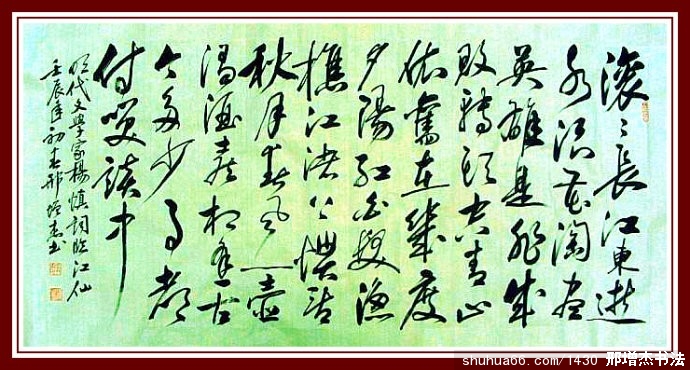 滚〻長江東逝
水浪花淘尽
英雄是非成
敗轉頭空青山
依舊在幾度
夕陽红白髮漁
樵江渚上惯看
秋月春风一壶
濁酒喜相逢古
今多少事都
付笑談中
明代文學家楊慎詞临江仙
壬辰年初春邢增杰书
shuhua66.com/1430 邢增杰书法